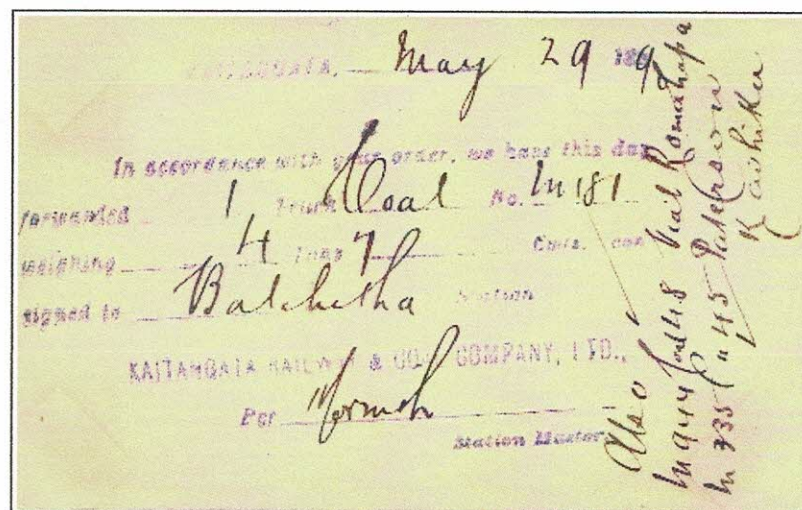 KAITANGATA, May 29 189
In accordance with your order, we have this day
forwarded 1 Truck Coal No. M 181
weighing 4 Tons 7 Cwts. con
signed to Balclutha Station
KAITANGATA RAILWAY & COAL COMPANY, LTD.,
Per
Station Master
Also
M 944 48 Romahapa
M 335 45 Paterson